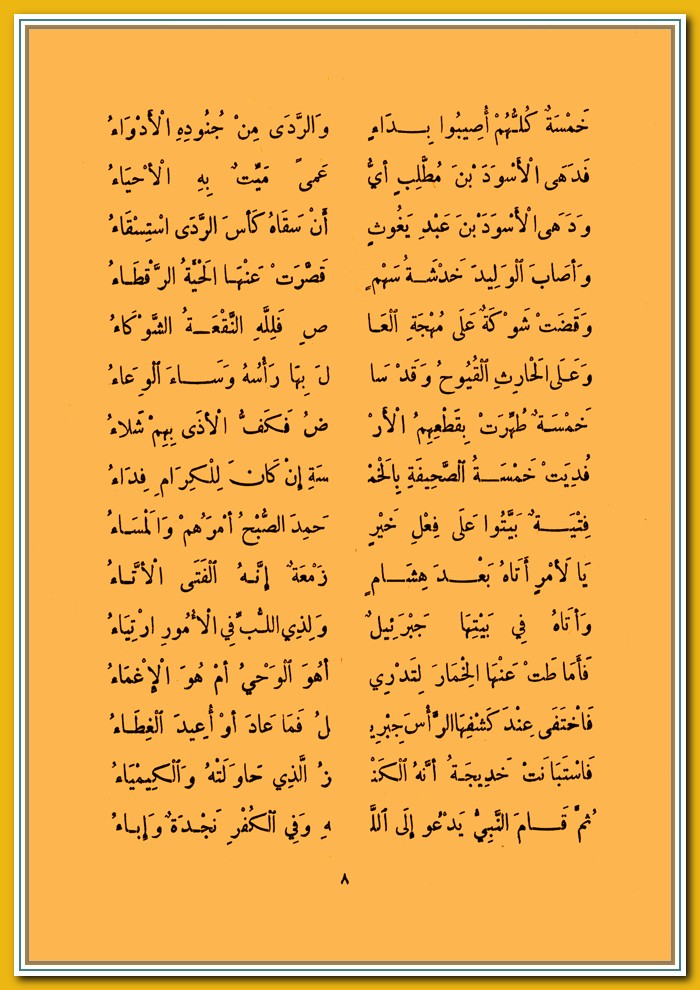 خَمْسَةٌ كُلُّهُمْ أُصِيبُوا بِـــدَاءٍ وَالرَّدَى مِنْ جُنُودِهِ الْأَدْوَاءُ
فَدَهَى الْأَسْوَدَ بْنَ مُطَّلِبٍ أَيُّ عَمىً مَيِّتٌ بِهِ الْأَحْيَاءُ
وَدَهى الْأَسْوَدَ بْنَ عَبْدِ يَغُوثٍ أَنْ سَقَاهُ كَأْسَ الرَّدَى اسْتِسْقَاءُ
وَأَصَابَ الْوَلِيدَ خَدْشَـةُ سَهْمٍ قَصَّرَتْ عَنْهَـا الْحَيَّةُ الرَّقْطَـاءُ
وَقَضَتْ شَوْكَةٌ عَلَى مُهْجَةِ الْعَـا صِ فَلِلَّهِ النَّقْعَـــةُ الشَّوْكَاءُ
وَعَـلَى الْحَارِثِ الْقُيُوحُ وَقَدْ سَا لَ بِهَا رَأْسُهُ وَسَـــاءَ الْوِعَاءُ
خَمْسَـةٌ طُهِّرَتْ بِقَطْعِهِمُ الْأَرْ ضُ فَـكَفُّ الْأَذَى بِهِمْ شَلَاءُ
فُدِيَتْ خَمْسَــةُ الصَّحِيفَةِ بِالْخَمْ سَةِ إِنْ كَانَ لِلْكِرَامِ فِدَاءُ
فِتْيَــــةٌ بَيَّتُوا عَلَى فِعْلِ خَيْرٍ حَمِدَ الصُّبْحُ أَمْرَهُمْ وَالْمَسَـاءُ
يَا لَأَمْرٍ أَتَاهُ بَعْـــدَ هِشَـــامٍ زَمْعَةٌ إِنَّـهُ الْفَتَى الْأَتَّـاءُ
وَأَتَاهُ فِي بَيْتِهَا جَبْرَئِيلٌ وَلِذِي اللُّـبِّ فِي الْأُمُورِ ارْتِيَاءُ
فَأَمَاطَتْ عَنْهَا الْخِمَارَ لِتَدْرِي أَهُوَ الْوَحْيُ أَمْ هُوَ الْإِغْمَاءُ
فَاخْتَفَى عِنْدَ كَشْفِهَا الرَّأْسَ جِبْرِيـ لُ فَمَا عَادَ أَوْ أُعِيدَ الْغِطَـاءُ
فَاسْتَبَانَتْ خَدِيجَـةُ أَنَّهُ الْكَنْـ زُ الَّذِي حَاوَلَتْهُ وَالْكِيمْيَاءُ
ثُمَّ قَـــامَ النَّبِيُّ يَدْعُو إِلَى اللَّـ هِ وَفِي الْكُفْرِ نَجْـدَةٌ وَإِبـاءُ
٨